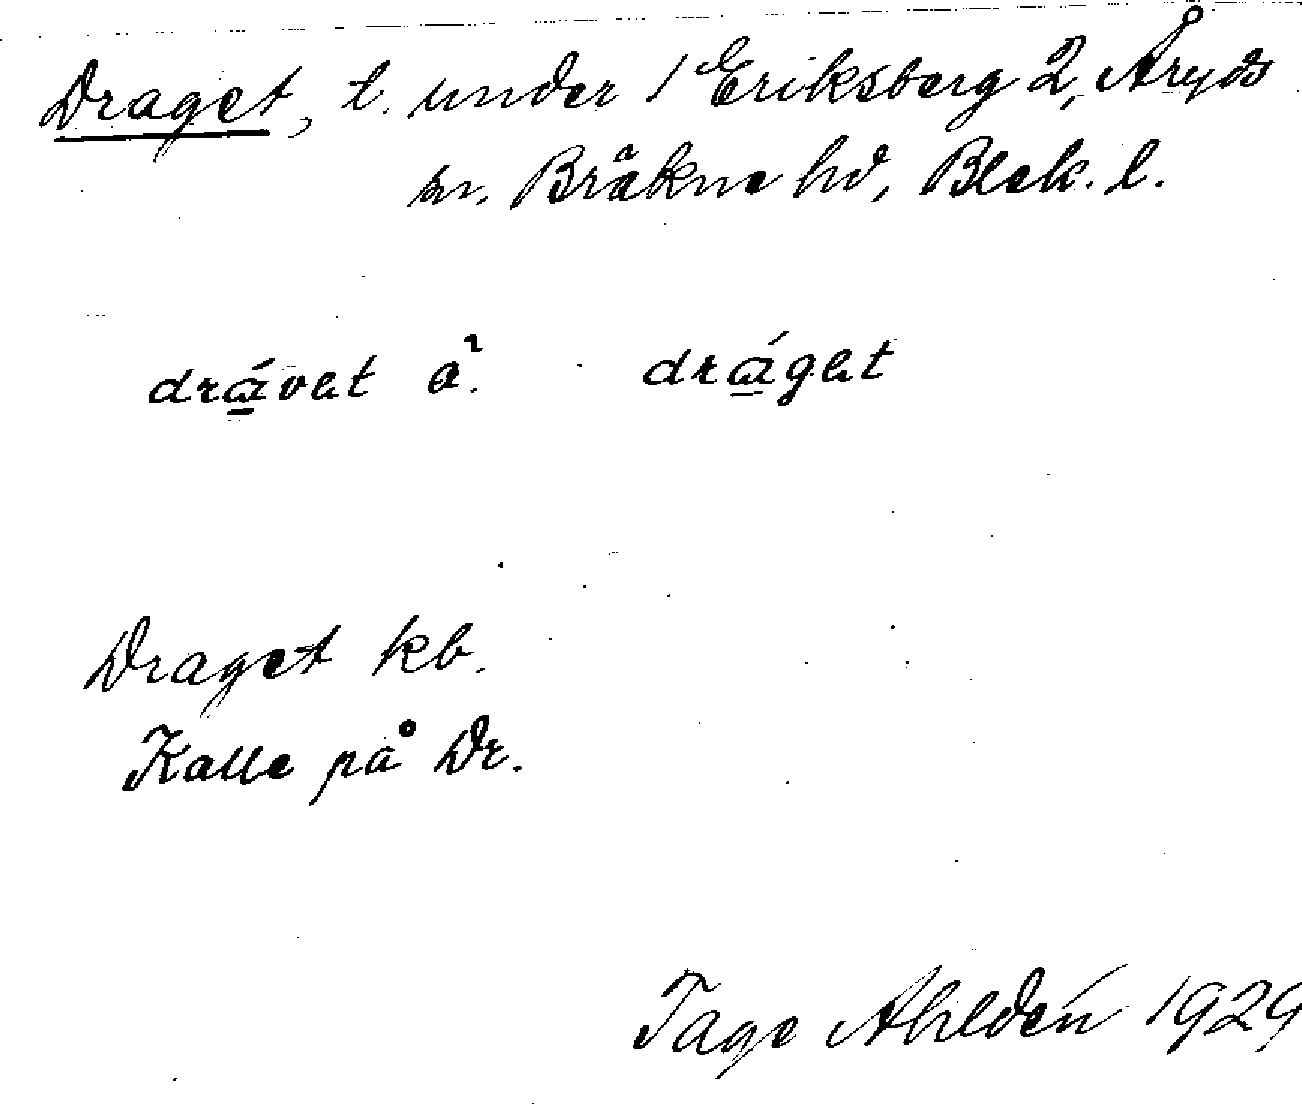 Draget, t. under 1 Eriksberg 2, Åryds
sn. Bräkne hd, Blek. l.
drávet a². dráget
Draget kb.
Kalle på Dr.
Tage Ahldén 1929